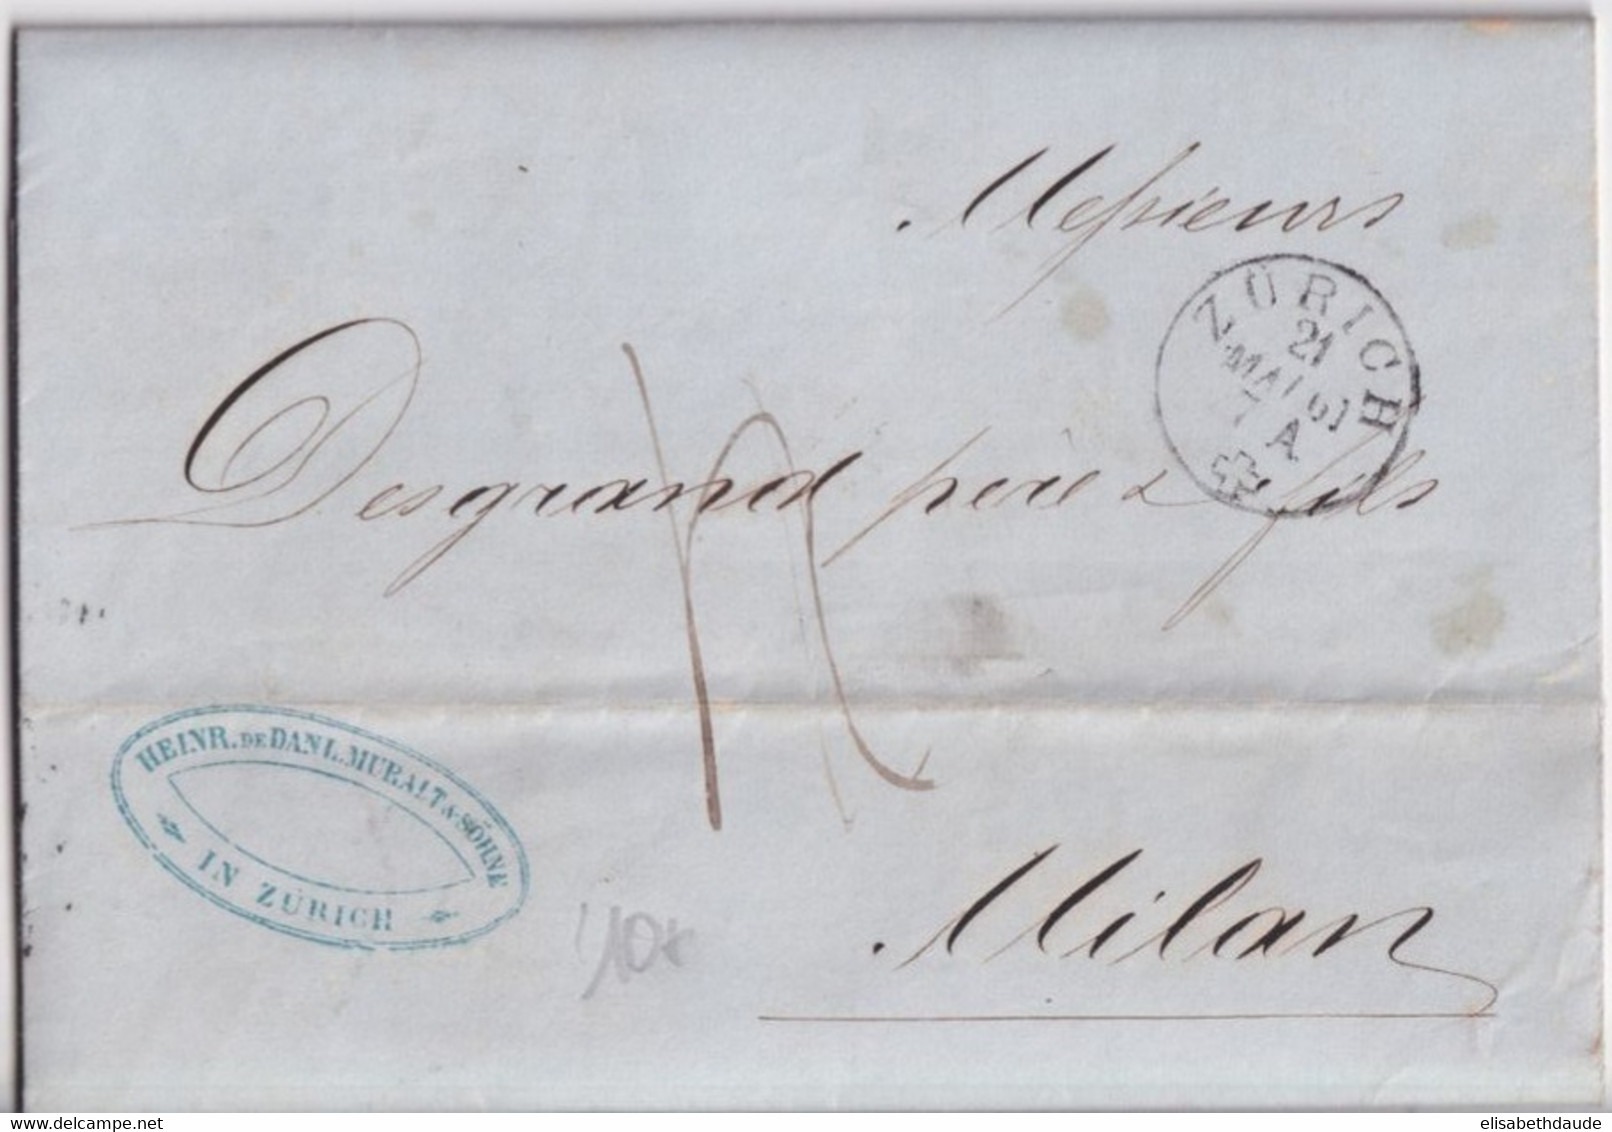 Messieurs
ZÜRICH
21
MAI 61
7 A
Desgrand père & fils
HEINR. DE DANL. MURALT & SÖHNE
IN ZÜRICH
Milan
delcampe.net
elisabethdaude